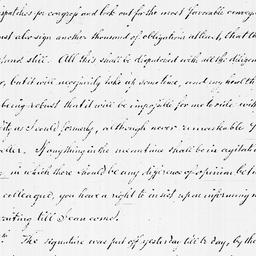 spatches for congress and look out for the most favorable convey
ust also sign another thousand of obligations at least, that th
tand still. All this shall be dispatched with all the diligen
er, but it will necessarily take up some time, and my health th
being robust that it will be impossible for me to ride with
ity as I could formerly, although never remarkable f
eller. If any thing in the meantime shall be in agitatio
in which there should be any difference of opinion betw
colleague, you have a right to insist upon informing m
writing till I can come.
th The signature was put off yesterday till to day, by the